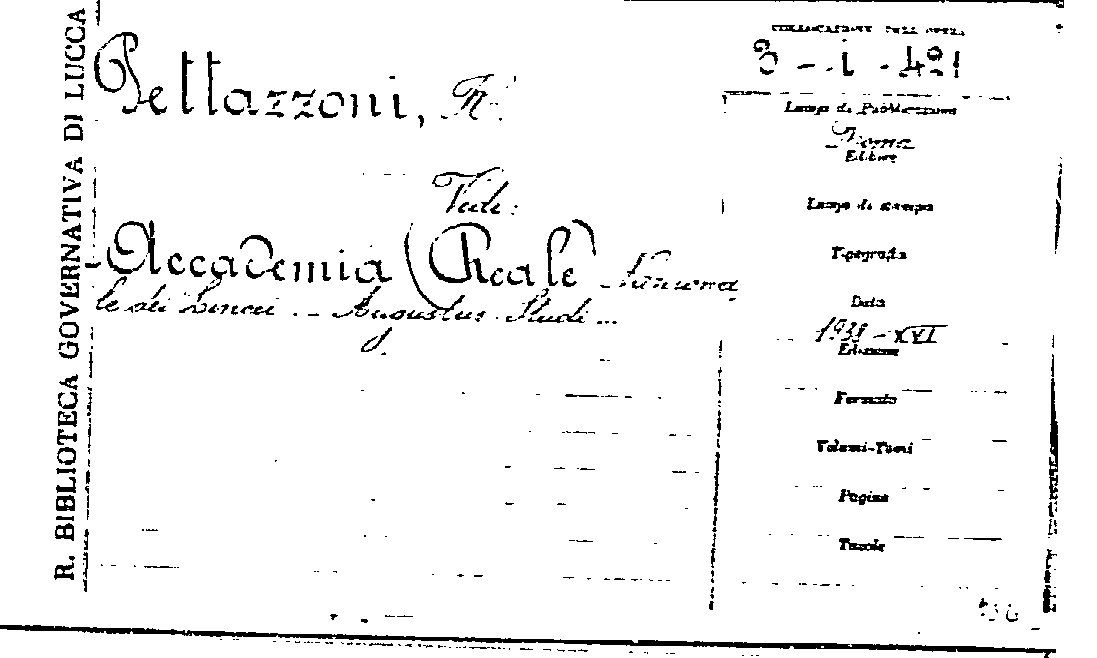 R. BIBLIOTECA GOVERNATIVA DI LUCCA
Pettazzoni, R.
Vedi:
Accademia (Reale) Naziona
le dei Lincei. - Augustus. Studi...
COLLOCAZIONE DELL'OPERA
3 - i - 421
Luogo di Pubblicazione
Roma
Editore
Luogo di stampa
Tipografia
Data
1938-XVI
Edizione
Formato
Volumi-Tomi
Pagine
Tavole